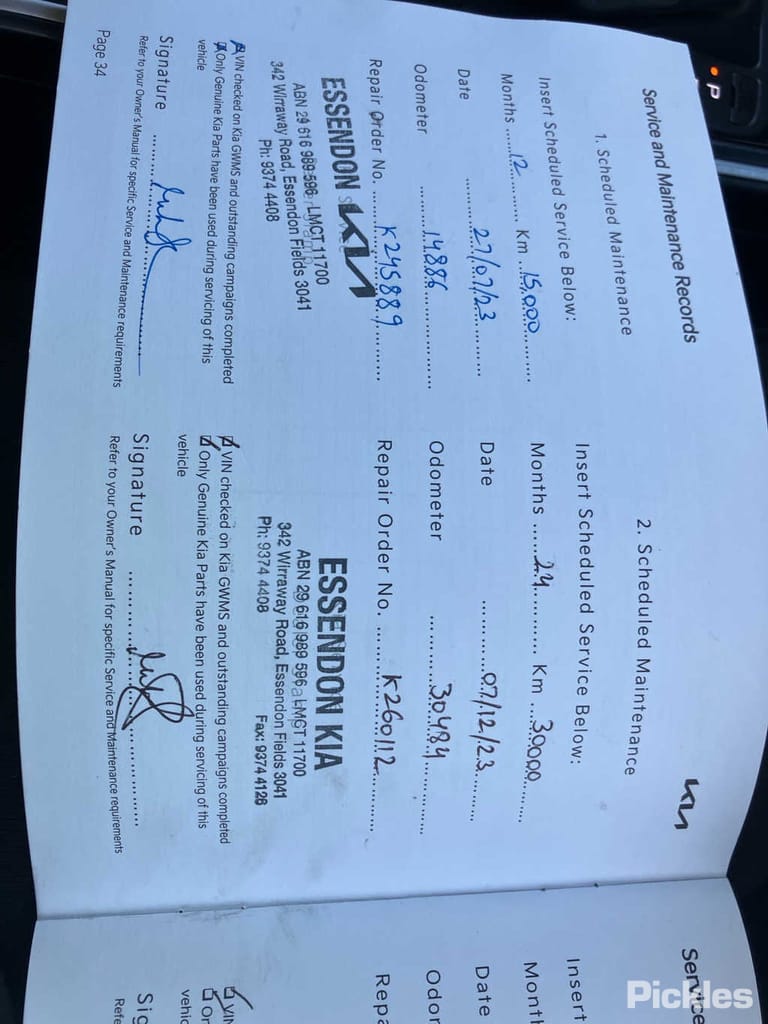 Service and Maintenance Records
1. Scheduled Maintenance
Insert Scheduled Service Below:
Months ...... 12 ......... Km ... 15,000 .........
Date ......... 27/07/23 .........
Odometer ......... 14886 ...............
Repair Order No. ......... K245889 .........
ESSENDON KIA
ABN 29 616 989 596 LMCT 11700
342 Wirraway Road, Essendon Fields 3041
Ph: 9374 4408
VIN checked on Kia GWMS and outstanding campaigns completed
Only Genuine Kia Parts have been used during servicing of this
vehicle
Signature ..............................
Refer to your Owner's Manual for specific Service and Maintenance requirements
Page 34
KIA
2. Scheduled Maintenance
Insert Scheduled Service Below:
Months ...... 24 ......... Km ... 30000 .........
Date ............ 07/12/23 .........
Odometer ............ 30484 .........
Repair Order No. ......... K260112 .........
ESSENDON KIA
ABN 29 616 989 596 LMCT 11700
342 Wirraway Road, Essendon Fields 3041
Ph: 9374 4408 Fax: 9374 4128
VIN checked on Kia GWMS and outstanding campaigns completed
Only Genuine Kia Parts have been used during servicing of this
vehicle
Signature ..............................
Refer to your Owner's Manual for specific Service and Maintenance requirements
Service
Insert
Month
Date
Odom
Repa
VIN
On
vehic
Sig
Refe
P
Pickles